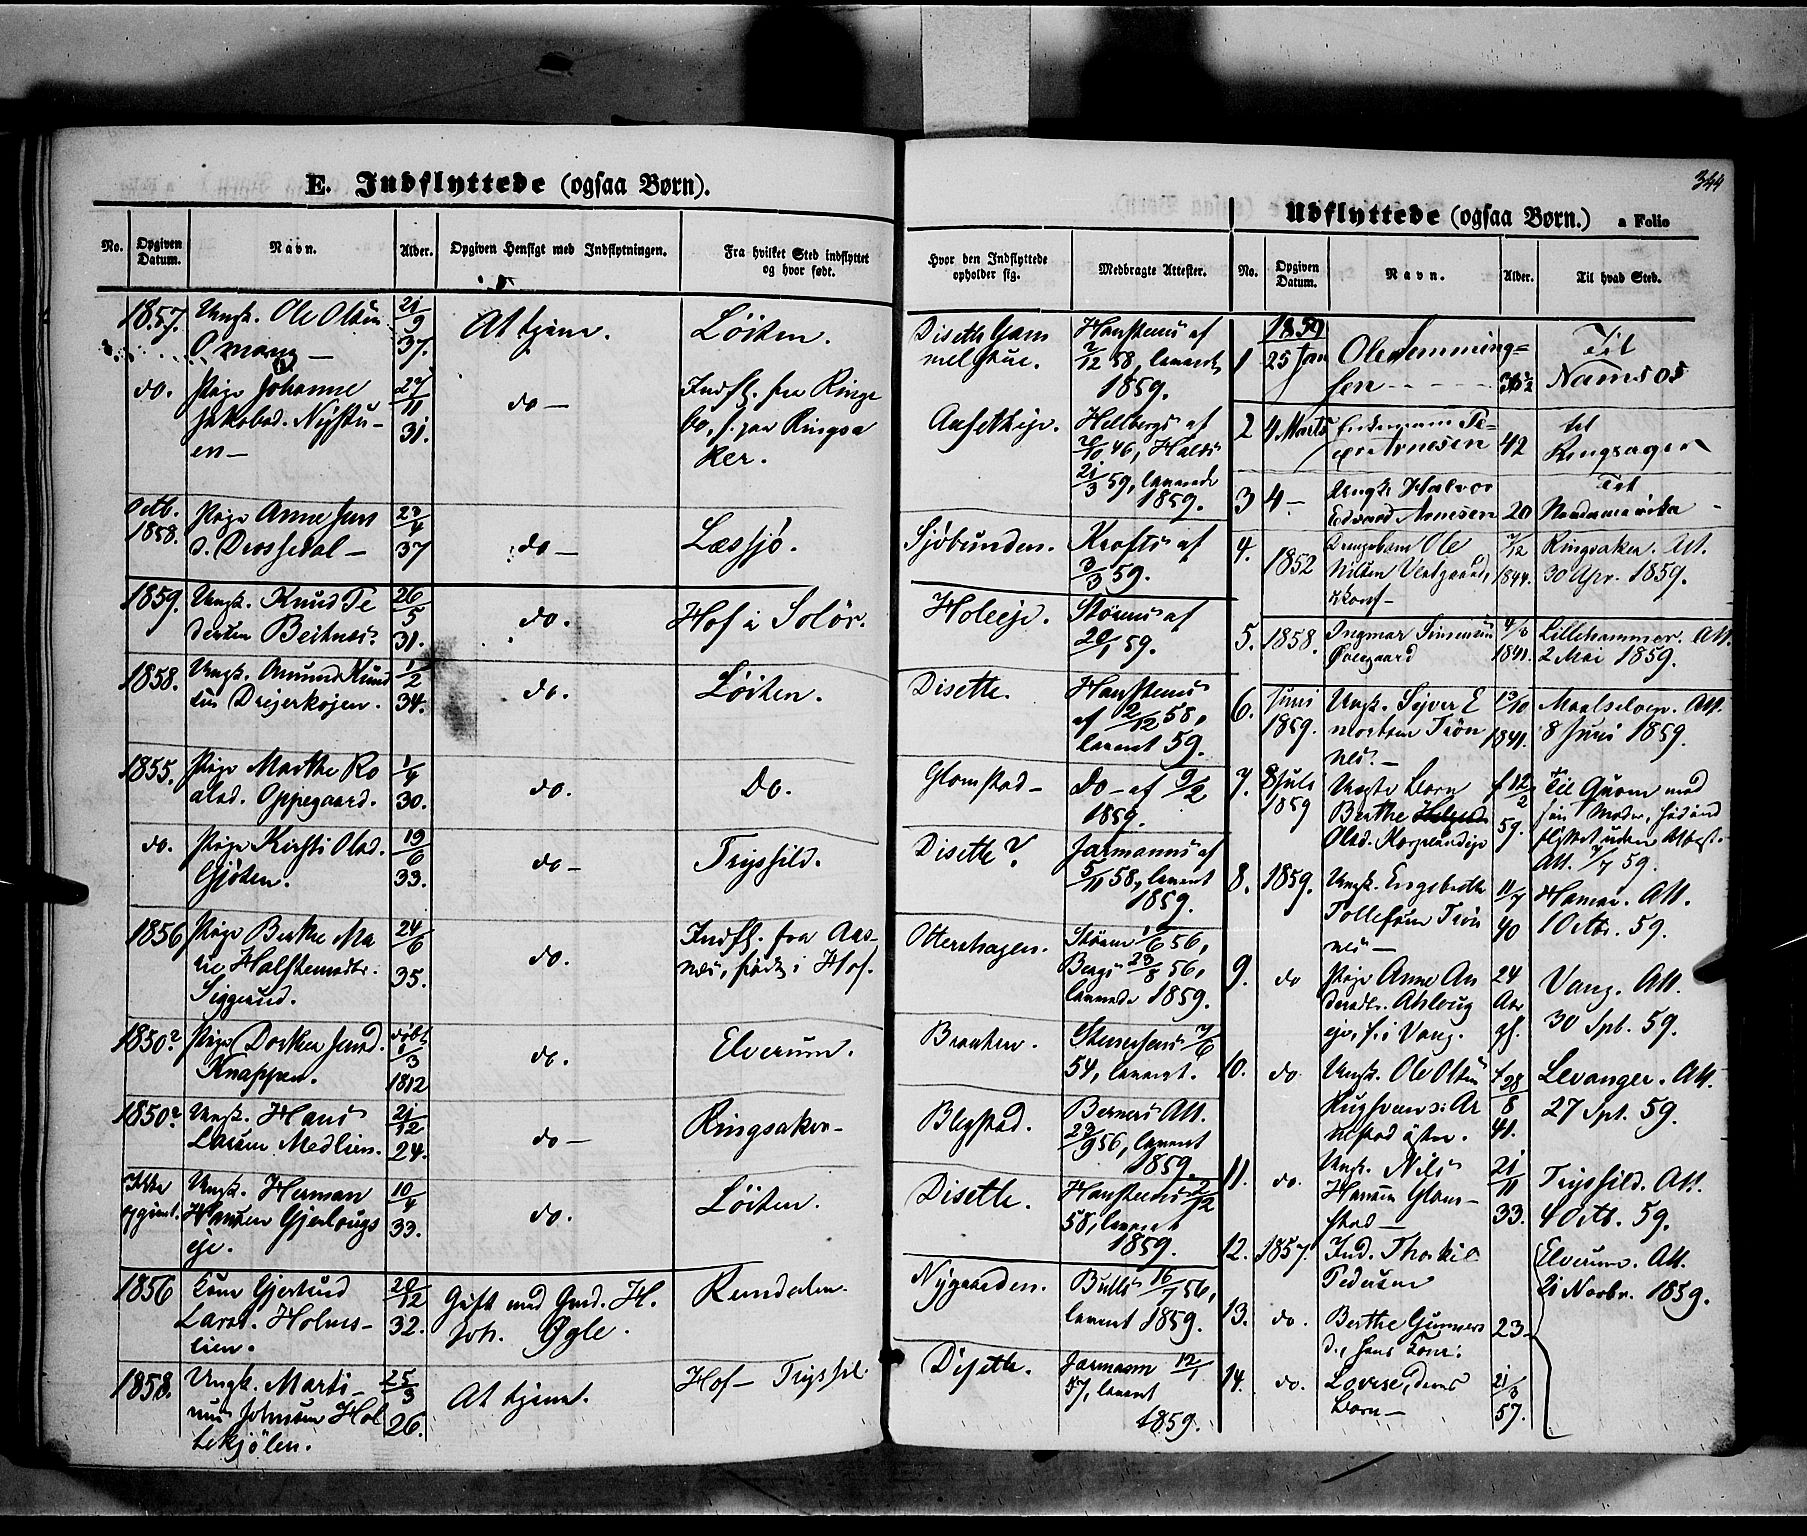 344
E. Indflyttede (ogsaa Børn).
No.
Opgiven Datum.
Navn.
Alder.
Opgiven Hensigt med Indflytningen.
Fra hvilket Sted indflyttet og hvor født.
Hvor den Indflyttede opholder sig.
Medbragte Attester.
1857.
Ungk. Ole Olsen
Omang —
21/9
37.
At tjene.
Løiten.
Diseth Gam
melstue.
Hansteens af
2/12 58, leveret
1859.
do.
Pige Johanne
Jakobsd. Nystu-
en —
27/11
31.
do —
Indfl. fra Ringe
bo, f. paa Ringsa
ker.
Hellbergs af
46,
21/3 59, leverede
1859.
Octb.
1858.
Pige Anne Jens
d. Drossedal —
23/4
37
do —
Læssjø.
Sjøbunden.
Krafts af
3/3 59.
1859.
Ungk. Knud Pe
dersen Beitnes.
26/5
31.
do.
Hof i Solør.
Holeeje.
Størens af
20/1 59.
1858.
Ungk. Amund Knud
sen Drejerkojen.
1/2
34.
do.
Løiten.
Disethe.
Hansteens
af 2/12 58,
leveret 59.
1855.
Pige Marthe Ro
alsd. Oppegaard.
1/4
30.
do.
Do.
Glomstad —
Do — af 9/2
1859.
do.
Pige Kirsti Olsd.
Gjøten.
19/6
33.
do —
Trysfild.
Disethe?
Jarmanns af
5/11 58, leveret
1859.
1856
Pige Berthe Ma
rie Halstensdtr.
Siggerud.
24/6
35.
do.
Indfl. fra Aas-
nes, født i Hof.
Ottershagen.
Størens 1/6 56,
Bergs 23/5 56,
leverede 1859.
1850?
Pige Dorthea Jensd.
Knappen.
døbt
1/3
1812
do.
Elverum.
Braaten.
Stenersens 7/6
54, leveret.
1850?
Ungk. Hans
Larsen Medlien.
21/12
24.
do —
Ringsaker —
Blegstad.
Berners Att.
23/9 56, leveret
1859.
Ikke
opgivet.
Ungk. Herman
Hansen Gjerlougs
eje.
10/4
33.
do.
Løiten.
Disethe.
Hansteens 2/12
58, leveret
1859.
1856
Kone Gjertrud
Larsd. Holmes-
lien.
20/12
32.
Gift med Gmd. H.
Joh. Øgle.
Rendalen.
Nygaarden.
Bulls 16/7 56,
leveret 1859.
1858.
Ungk. Marti-
nus Johnsen Hol
tekjølen.
25/3
26.
At tjene.
Hof — Trysfil.
Disethe.
Jarmann 12/1
57, leveret
1859.
Udflyttede (ogsaa Børn.) a Folio
No.
Opgiven Datum.
Navn.
Alder.
Til hvad Sted.
1859
1
25 Jan
Ole Hemming-
sen
Til
Namsos
2
4 Marts
Arnesen
42
til
Ringsager
3
4 —
Ungk. Halvor
Edvard Arnesen
20
Til
Nordamerika
4.
1852
Drengebarn Ole
Nilsen Vestgaard,
7/12
1844.
Ringsaker. Att.
30 Apr. 1859.
5.
1858.
Ingmar Simensen
Øvergaard
4/3
1841.
Lillehammer. Att.
2 Mai 1859.
6.
Juni
1859.
Ungk. Sejver E
mbretsen Trøn
nes. —
13/10
1841.
Maalselven. Att.
8 Juni 1859.
7.
8 Juli
1859
Uægte Barn
Berthe
Olsd.
f 12/2
59.
Til Qvam med
sin Moder, hid ind
flyttet uden Attest.
Att. 7/7 59.
8.
1859.
Ungk. Engebreth
Tollefsen Trøn
nes —
11/7
40
Hamar. Att.
1 Octbr. 59.
9.
do
Pige Anne An
dersdtr.
eje, f. i Vang.
24
Aar
gl.
Vang. Att.
30 Spt. 59.
10.
do
Ungk. Ole Olsen
f 28/8
41.
Levanger. Att.
27 Spt. 59.
11.
do.
Ungk. Nils
Hansen Glom-
stad —
21/11
33.
Trysfild. Att.
4 Octb. 59.
12.
1857.
Ind. Thorkil
Pedersen
Elverum. Att.
21 Novbr. 1859.
13.
do.
Berthe Gunners
d., hans Kone.
23 —
14.
do.
Lovise, deres
Barn —
21/3
57.